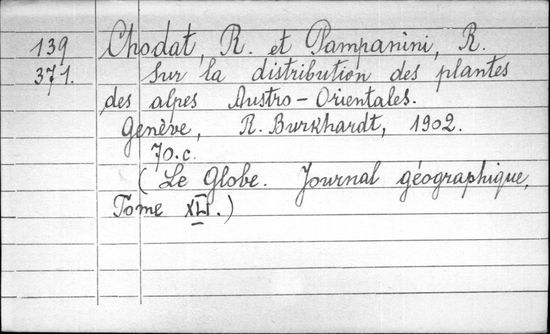 139 Chodat, R. et Pampanini, R.
371. Sur la distribution des plantes
des alpes Austro-Orientales.
Genève, R. Burkhardt, 1902.
70.c.
(Le Globe. Journal géographique,
Tome XLI.)